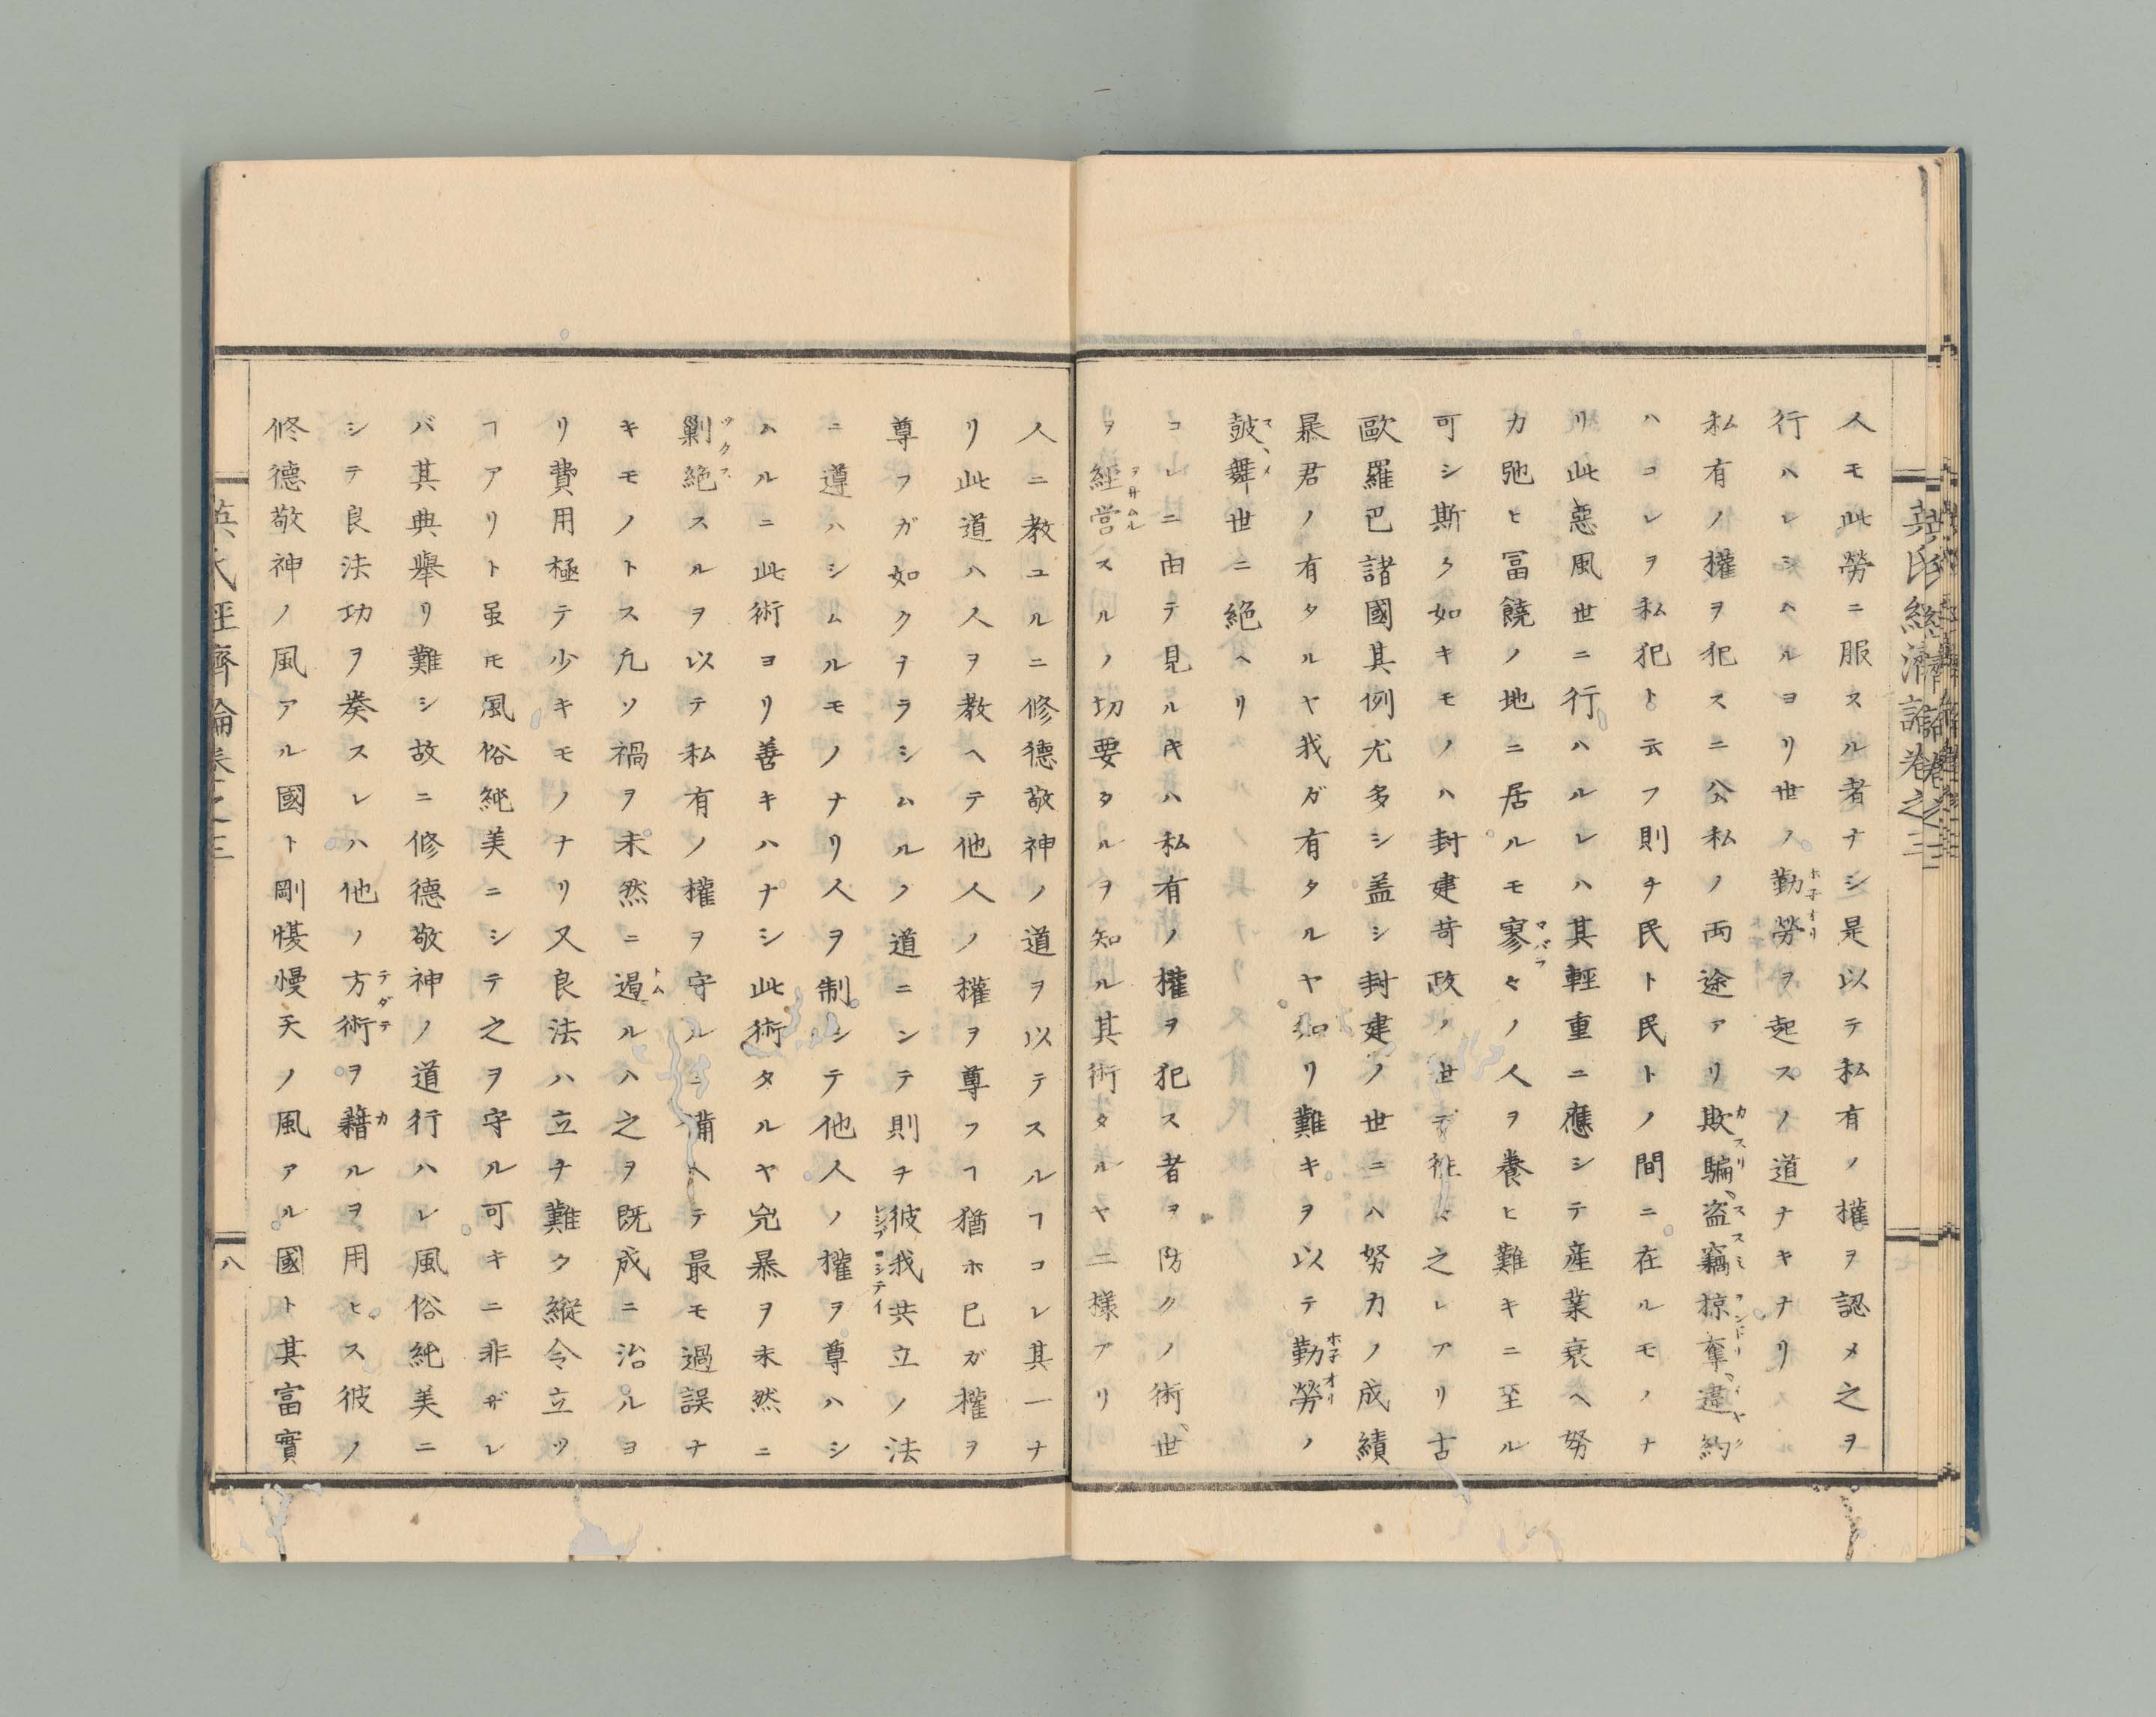 人モ此勞ニ服スル者ナシ是以テ私有ノ權ヲ認メ之ヲ
行ハレシムルヨリ世ノ勤勞ヲ起スノ道ナキナリ
私有ノ權ヲ犯スニ公私ノ両途アリ欺騙盗竊掠奪違約
ハコレヲ私犯ト云フ則チ民ト民トノ間ニ在ルモノナ
リ此惡風世ニ行ハルレハ其輕重ニ應シテ産業衰ヘ努
力弛ヒ冨饒ノ地ニ居ルモ寥々ノ人ヲ養ヒ難キニ至ル
可シ斯ク如キモノハ封建苛政ノ世デ徃々之レアリ古
歐羅巴諸國其例尤多シ盖シ封建ノ世ニハ努力ノ成績
暴君ノ有タルヤ我ガ有タルヤ知リ難キヲ以テ勤勞ノ
皷舞世ニ絶ヘリ
コレニ由テ見ル𪜈ハ私有ノ權ヲ犯ス者ヲ防クノ術世
ヲ經営スルノ切要タルヲ知ル其術タルヤ二様アリ
人ニ教ユルニ修德敬神ノ道ヲ以テスルヿコレ其一ナ
リ此道ハ人ヲ教ヘテ他人ノ權ヲ尊フヿ猶ホ己ガ權ヲ
尊フガ如クヲラシムルノ道ニシテ則チ彼我共立ノ法
ニ遵ハシムルモノナリ人ヲ制シテ他人ノ權ヲ尊ハシ
ムルニ此術ヨリ善キハナシ此術タルヤ兇暴ヲ未然ニ
剿絶スルヲ以テ私有ノ權ヲ守ルニ備ヘテ最モ過誤ナ
キモノトス凢ソ禍ヲ未然ニ遏ルハ之ヲ既成ニ治ルヨ
リ費用極テ少キモノナリ又良法ハ立チ難ク縦令立ツ
ヿアリト虽𪜈風俗純美ニシテ之ヲ守ル可キニ非ザレ
バ其典舉リ難シ故ニ修德敬神ノ道行ハレ風俗純美ニ
シテ良法功ヲ奏スレハ他ノ方術ヲ藉ルヲ用ヒス彼ノ
修德敬神ノ風アル國ト剛愎慢天ノ風アル國ト其富實
英氏經濟論卷之三
八